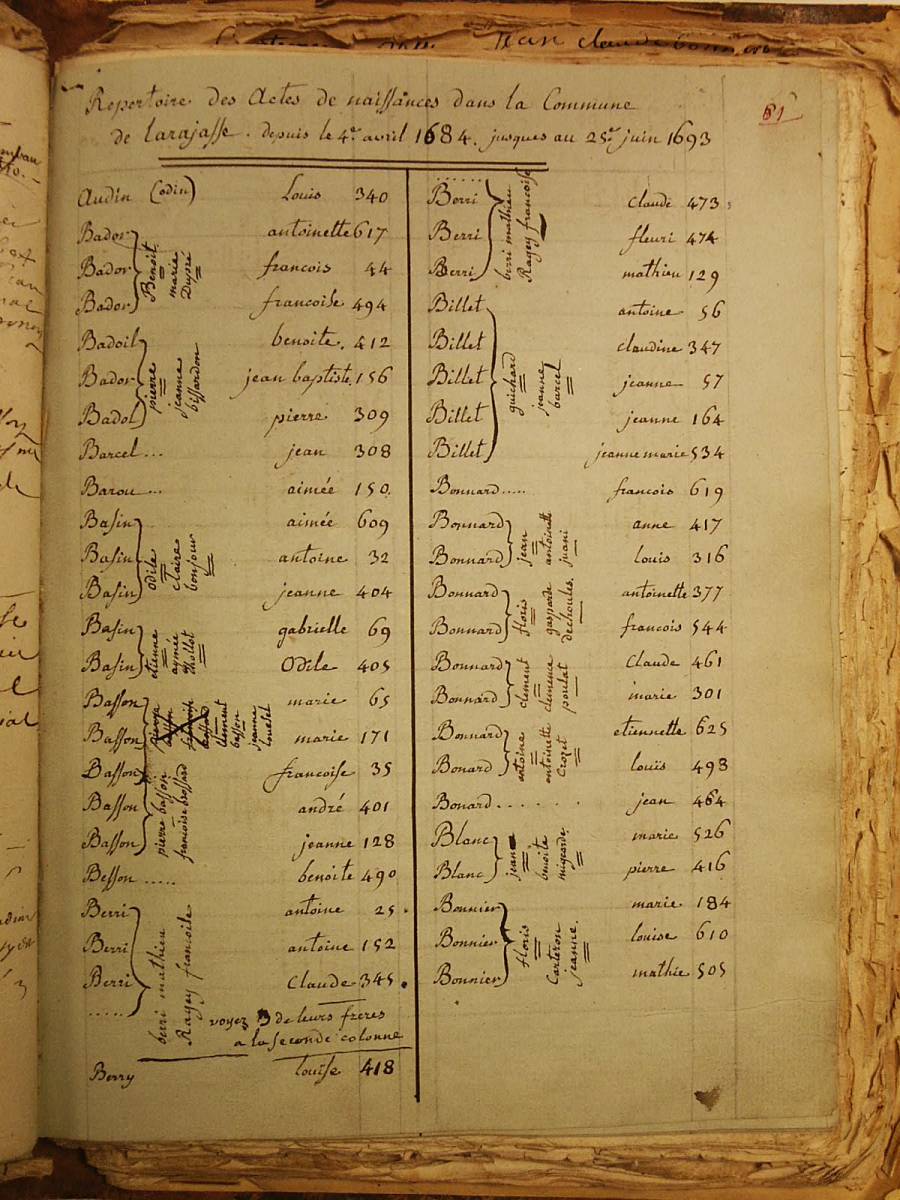 jean claude
Repertoire des Actes de naissances dans la Commune
de Larajasse. depuis le 4e. avril 1684. jusques au 25e. juin 1693
61
Audin (odin) Louis 340
Bador antoinette 617
Bador francois 44
Bador francoise 494
Benoit
marie
Dupré
Badoil benoite. 412
Bador jean baptiste 156
Badol pierre 309
pierre
jeanne
bissardon
Barcel ... jean 308
Barou ... aimée 150.
Basin aimée 609
Basin antoine 32
Basin jeanne 404
odile
claire
bonjour
Basin gabrielle 69
Basin Odile 405
etienne
aymée
thollot
Basson marie 65
Basson marie 171
clement
basson
jeanne
Basson francoise 35
Basson andré 401
Basson jeanne 128
pierre basson
francoise brossard
Besson ..... benoite 490
Berri antoine 25.
Berri antoine 152
Berri Claude 345.
.....
berri mathieu
Ragey francoise
voyez 3 de leurs freres
a la seconde colonne
Berry louise 418
Berri claude 473
Berri fleuri 474
Berri mathieu 129
berri mathieu
Ragey francoise
Billet antoine 56
Billet claudine 347
Billet jeanne 57
Billet jeanne 164
Billet jeanne marie 534
guichard
jeanne
barcel
Bonnard ..... francois 619
Bonnard anne 417
Bonnard louis 316
jean
antoinette
juani
Bonnard antoinette 377
Bonnard francois 544
floris
gasparde
dechoules.
Bonnard Claude 461
Bonnard marie 301
clement
clemence
poulat
Bonnard etiennette 625
Bonard louis 493
antoine
antoinette
Crozet
Bonard ....... jean 464
Blanc marie 526
Blanc pierre 416
jean
benoite
Bonnier marie 184
Bonnier louise 610
Bonnier mathie 505
floris
Carteron
jeanne.